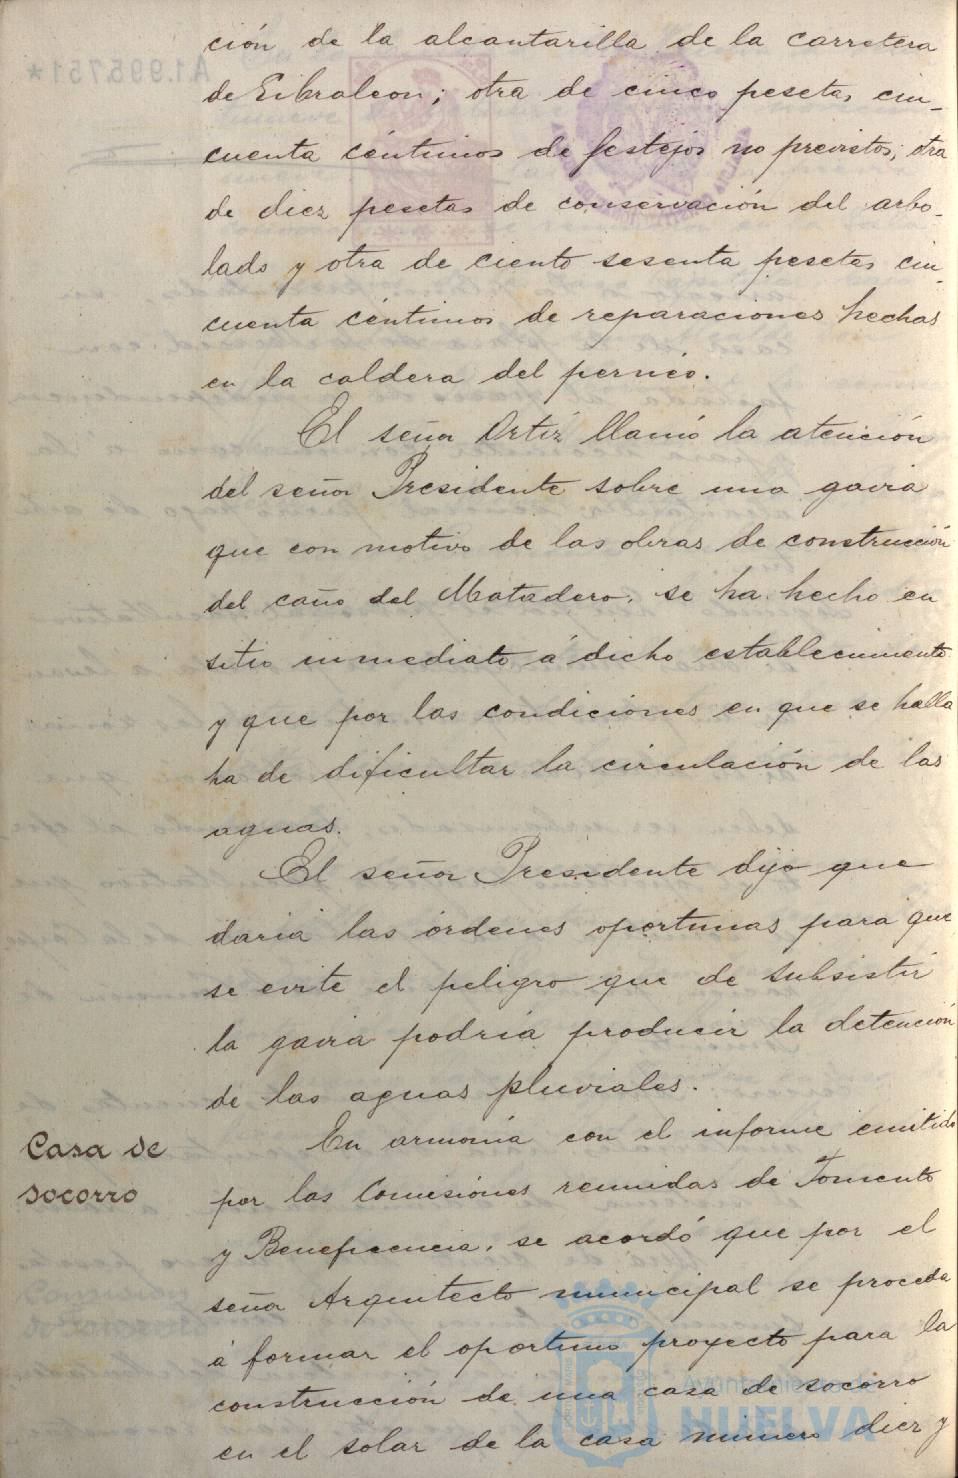 ción de la alcantarilla de la carretera
de Gibraleon; otra de cinco pesetas cin-
cuenta céntimos de festejos no previstos; otra
de diez pesetas de conservación del arbo-
lado y otra de ciento sesenta pesetas cin-
cuenta céntimos de reparaciones hechas
en la caldera del pernéo.
El señor Ortiz llamó la atención
del señor Presidente sobre una gavia
que con motivo de las obras de construcción
del caño del Matadero, se ha hecho en
sitio inmediato á dicho establecimiento
y que por las condiciones en que se halla
ha de dificultar la circulación de las
aguas.
El señor Presidente dijo que
daria las órdenes oportunas para que
se evite el peligro que de subsistir
la gavia podría producir la detención
de las aguas pluviales.
Casa de
socorro
En armonia con el informe emitido
por las Comisiones reunidas de Fomento
y Beneficencia, se acordó que por el
señor Arquitecto municipal se proceda
á formar el oportuno proyecto para la
construcción de una casa de socorro
en el solar de la casa número diez y
Ayuntamiento de
HUELVA
A1.995.751*